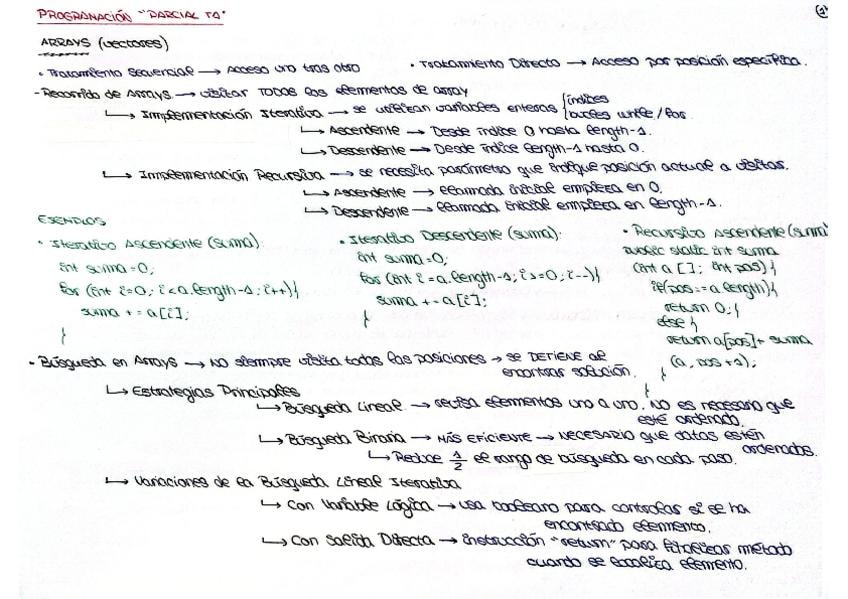 PROGRAMACIÓN "PARCIAL T1"
1
ARRAYS (vectores)
• Tratamiento Secuencial → Acceso uno tras otro
• Tratamiento Directo → Acceso por posición específica.
- Recorrido de Arrays → visitar TODOS los elementos de array
↳ Implementación Iterativa → se utilizan variables enteras { índices
bucles while/for
↳ Ascendente → Desde índice 0 hasta length-1.
↳ Descendente → Desde índice length-1 hasta 0.
↳ Implementación Recursiva → se necesita parámetro que indique posición actual a visitar.
↳ Ascendente → llamada inicial empieza en 0.
↳ Descendente → llamada inicial empieza en length-1.
EJEMPLOS
• Iterativo Ascendente (suma):
int suma=0;
for (int i=0; i<a.length-1; i++){
suma += a[i];
}
• Iterativo Descendente (suma):
int suma=0;
for (int i=a.length-1; i>=0; i--){
suma += a[i];
}
• Recursivo Ascendente (suma)
public static int suma
(int a[]; int pos){
if(pos==a.length){
return 0;}
else {
return a[pos]+ suma
(a, pos+1);
}
}
• Búsqueda en Arrays → NO siempre visita todas las posiciones → se DETIENE al
encontrar solución.
↳ Estrategias Principales
↳ Búsqueda Lineal → revisa elementos uno a uno. NO es necesario que
esté ordenado.
↳ Búsqueda Binaria → MÁS EFICIENTE → NECESARIO que datos estén
ordenados.
↳ Reduce 1/2 el rango de búsqueda en cada paso.
↳ Variaciones de la Búsqueda Lineal Iterativa
↳ Con Variable Lógica → usa booleano para controlar si se ha
encontrado elemento.
↳ Con Salida Directa → instrucción "return" para finalizar método
cuando se localiza elemento.